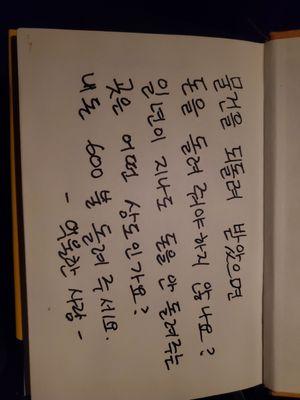 물건을 되돌려 받았으며
돈을 돌려줘야 하지 않나요?
일년이 지나도 돈을 안 돌려주는
곳은 어떤 상도인가요?
내돈 600불 돌려주세요.
- 억울한 사람 -